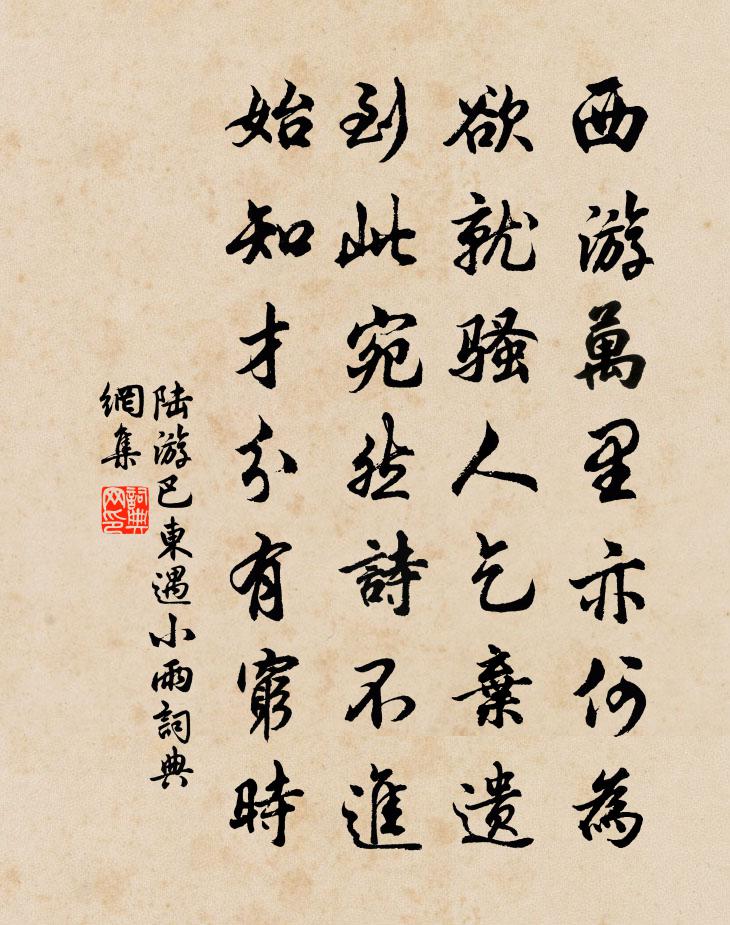 西游萬里亦何為
欲就騷人乞棄遗
到此宛然詩不進
始知才分有窮時
陆游巴東遇小雨詞典
網集
詞典
网印